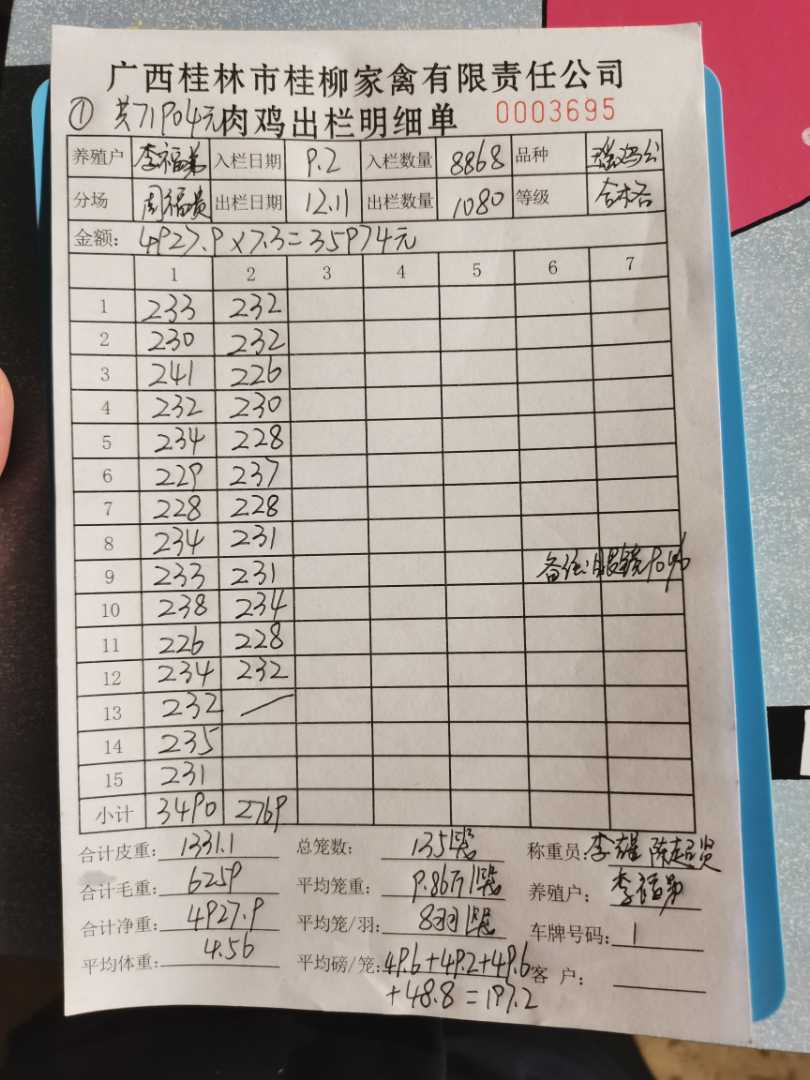 广西桂林市桂柳家禽有限责任公司
① 共71904元 肉鸡出栏明细单 0003695
养殖户 李福弟 入栏日期 9.2 入栏数量 8868 品种 瑶鸡公
分场 周福贵 出栏日期 12.11 出栏数量 1080 等级 合格
金额: 4927.9×7.3=35974元
1 2 3 4 5 6 7
1 233 232
2 230 232
3 241 226
4 232 230
5 234 228
6 229 237
7 228 228
8 234 231
9 233 231 备注:眼镜90%
10 238 234
11 226 228
12 234 232
13 232
14 235
15 231
小计 3490 2769
合计皮重: 1331.1 总笼数: 135笼 称重员: 李
合计毛重: 6259 平均笼重: 9.86斤/笼 养殖户: 李福弟
合计净重: 4927.9 平均笼/羽: 8羽/笼 车牌号码: 1
平均体重: 4.56 平均磅/笼: 49.6+49.2+49.6 客 户:
+48.8=197.2